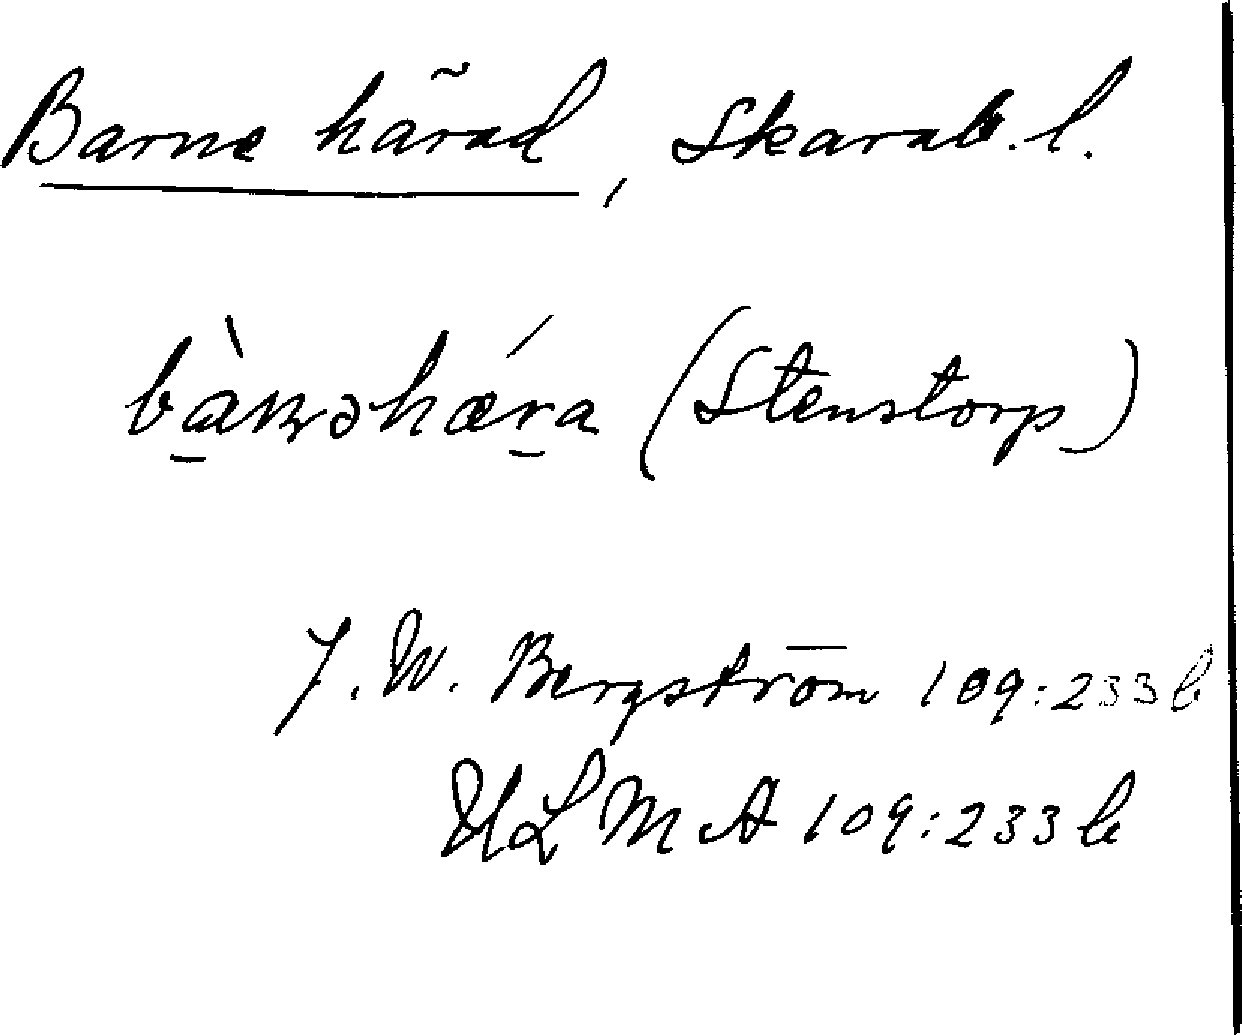 Barne härad, Skarab. l.
bàɳəhǽra (Stenstorp)
J. W. Bergström 109:233 b
ULMA 109:233 b